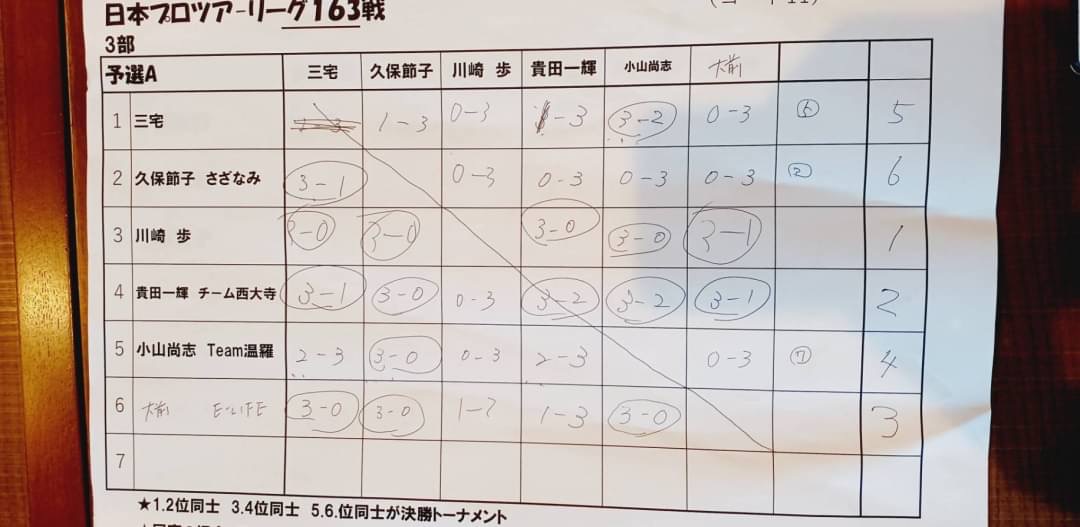 日本プロツアーリーグ163戦
3部
予選A 三宅 久保節子 川崎 歩 貴田一輝 小山尚志 大前
1 三宅 1-3 0-3 -3 3-2 0-3 5
2 久保節子 さざなみ 3-1 0-3 0-3 0-3 0-3 ② 6
3 川崎 歩 3-0 3-0 3-0 3-0 3-1 1
4 貴田一輝 チーム西大寺 3-1 3-0 0-3 3-2 3-2 3-1 2
5 小山尚志 Team温羅 2-3 3-0 0-3 2-3 0-3 ⑦ 4
6 大前 E-LIFE 3-0 3-0 1-3 3-0 3
7
★1.2位同士 3.4位同士 5.6.位同士が決勝トーナメント